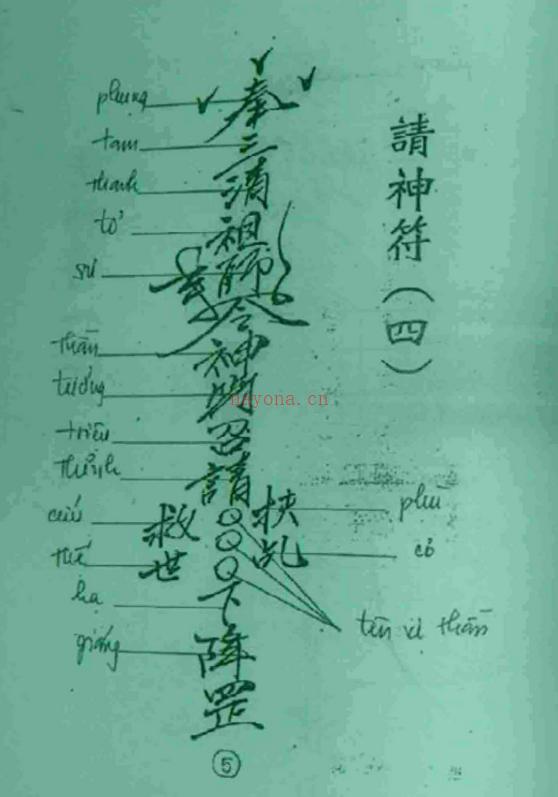 請神符（四）
phụng
奉
tam
三
thanh
清
tổ
祖
sư
師
令
thần
神
tướng
triệu
召
thỉnh
請
cứu
救
○
扶
phù
○
乩
cơ
thế
世
○
tên vị thần
hạ
下
giáng
降
罡
nayona.cn
5